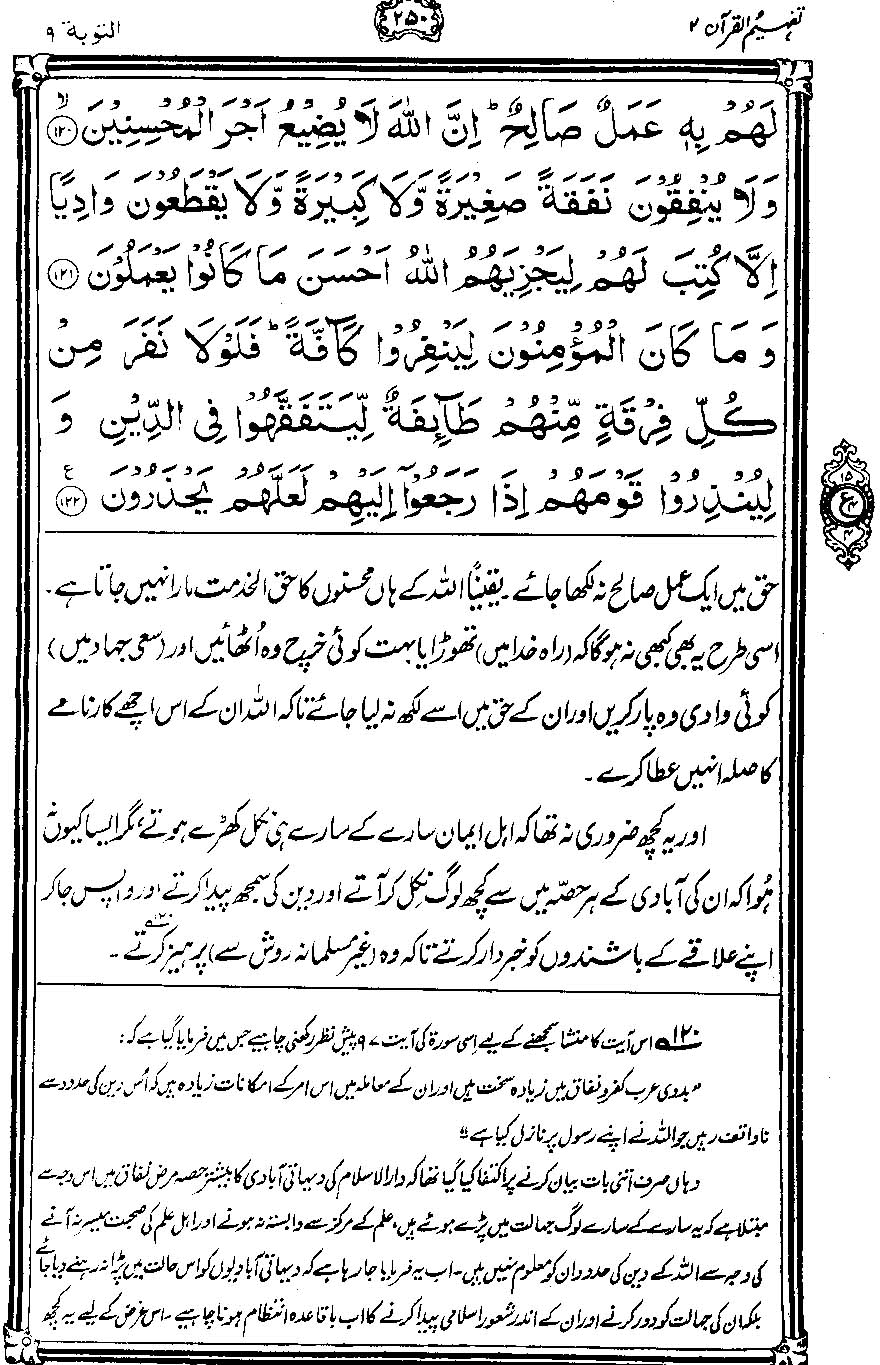 تفہیم القرآن ۲
۲۵۰
التوبة ۹
لَهُمْ بِهٖ عَمَلٌ صَالِحٌ ؕ اِنَّ اللّٰهَ لَا يُضِيْعُ اَجْرَ الْمُحْسِنِيْنَ ۙ﴿۱۲۰﴾
وَلَا يُنْفِقُوْنَ نَفَقَةً صَغِيْرَةً وَّلَا كَبِيْرَةً وَّلَا يَقْطَعُوْنَ وَادِيًا
اِلَّا كُتِبَ لَهُمْ لِيَجْزِيَهُمُ اللّٰهُ اَحْسَنَ مَا كَانُوْا يَعْمَلُوْنَ ﴿۱۲۱﴾
وَمَا كَانَ الْمُؤْمِنُوْنَ لِيَنْفِرُوْا كَآفَّةً ؕ فَلَوْلَا نَفَرَ مِنْ
كُلِّ فِرْقَةٍ مِّنْهُمْ طَآئِفَةٌ لِّيَتَفَقَّهُوْا فِى الدِّيْنِ وَ
لِيُنْذِرُوْا قَوْمَهُمْ اِذَا رَجَعُوْٓا اِلَيْهِمْ لَعَلَّهُمْ يَحْذَرُوْنَ ﴿۱۲۲﴾ ع
۱۵
ع
۴
۴
حق میں ایک عمل صالح نہ لکھا جائے۔ یقیناً اللہ کے ہاں محسنوں کا حق الخدمت مارا نہیں جاتا ہے۔
اسی طرح یہ بھی کبھی نہ ہوگا کہ (راہ خدا میں) تھوڑا یا بہت کوئی خرچ وہ اُٹھائیں اور (سعی جہاد میں)
کوئی وادی وہ پار کریں اور ان کے حق میں اسے لکھ نہ لیا جائے تاکہ اللہ ان کے اس اچھے کارنامے
کا صلہ انہیں عطا کرے۔
اور یہ کچھ ضروری نہ تھا کہ اہل ایمان سارے کے سارے ہی نکل کھڑے ہوتے، مگر ایسا کیوں نہ
ہُوا کہ ان کی آبادی کے ہر حصّہ میں سے کچھ لوگ نکل کر آتے اور دین کی سمجھ پیدا کرتے اور واپس جا کر
اپنے علاقے کے باشندوں کو خبردار کرتے تاکہ وہ (غیر مسلمانہ روش سے) پرہیز کرتے۱۲۰؎۔
۱۲۰؎ اس آیت کا منشا سمجھنے کے لیے اِسی سورۃ کی آیت ۹۷ پیش نظر رکھنی چاہیے جس میں فرمایا گیا ہے کہ:
”بدوی عرب کفر و نفاق میں زیادہ سخت ہیں اور ان کے معاملہ میں اس امر کے امکانات زیادہ ہیں کہ اُس دین کی حدود سے
ناواقف رہیں جو اللہ نے اپنے رسول پر نازل کیا ہے“
وہاں صرف اتنی بات بیان کرنے پر اکتفا کیا گیا تھا کہ دارالاسلام کی دیہاتی آبادی کا بیشتر حصہ مرض نفاق میں اس وجہ سے
مبتلا ہے کہ یہ سارے کے سارے لوگ جہالت میں پڑے ہوئے ہیں، علم کے مرکز سے وابستہ نہ ہونے اور اہل علم کی صحبت میسر نہ آنے
کی وجہ سے اللہ کے دین کی حدود ان کو معلوم نہیں ہیں۔ اب یہ فرمایا جا رہا ہے کہ دیہاتی آبادیوں کو اس حالت میں پڑا نہ رہنے دیا جائے
بلکہ ان کی جہالت کو دور کرنے اور ان کے اندر شعور اسلامی پیدا کرنے کا اب باقاعدہ انتظام ہونا چاہیے۔ اس غرض کے لیے یہ کچھ